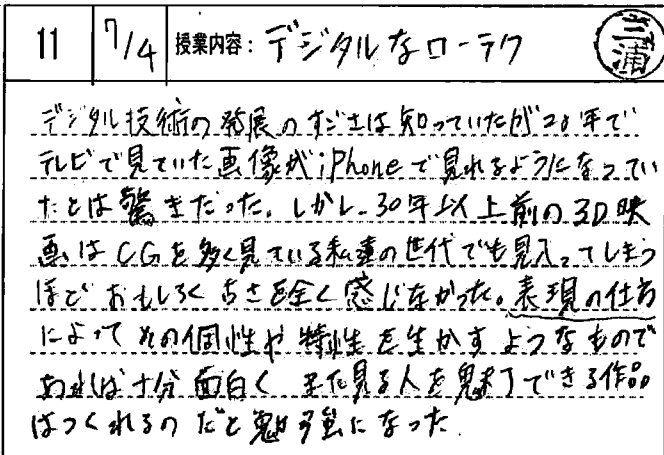 11 7/4 授業内容: デジタルなローテク 三浦
デジタル技術の発展のすごさは知っていたが20年で
テレビで見ていた画像がiPhoneで見れるようになってい
たとは驚きだった。しかし、30年以上前の3D映
画はCGを多く見ている私達の世代でも見入ってしまう
ほどおもしろく古さを全く感じなかった。表現の仕方
によってその個性や特性を生かすようなもので
あれば十分面白く また見る人を魅了できる作品
はつくれるのだと勉強になった.